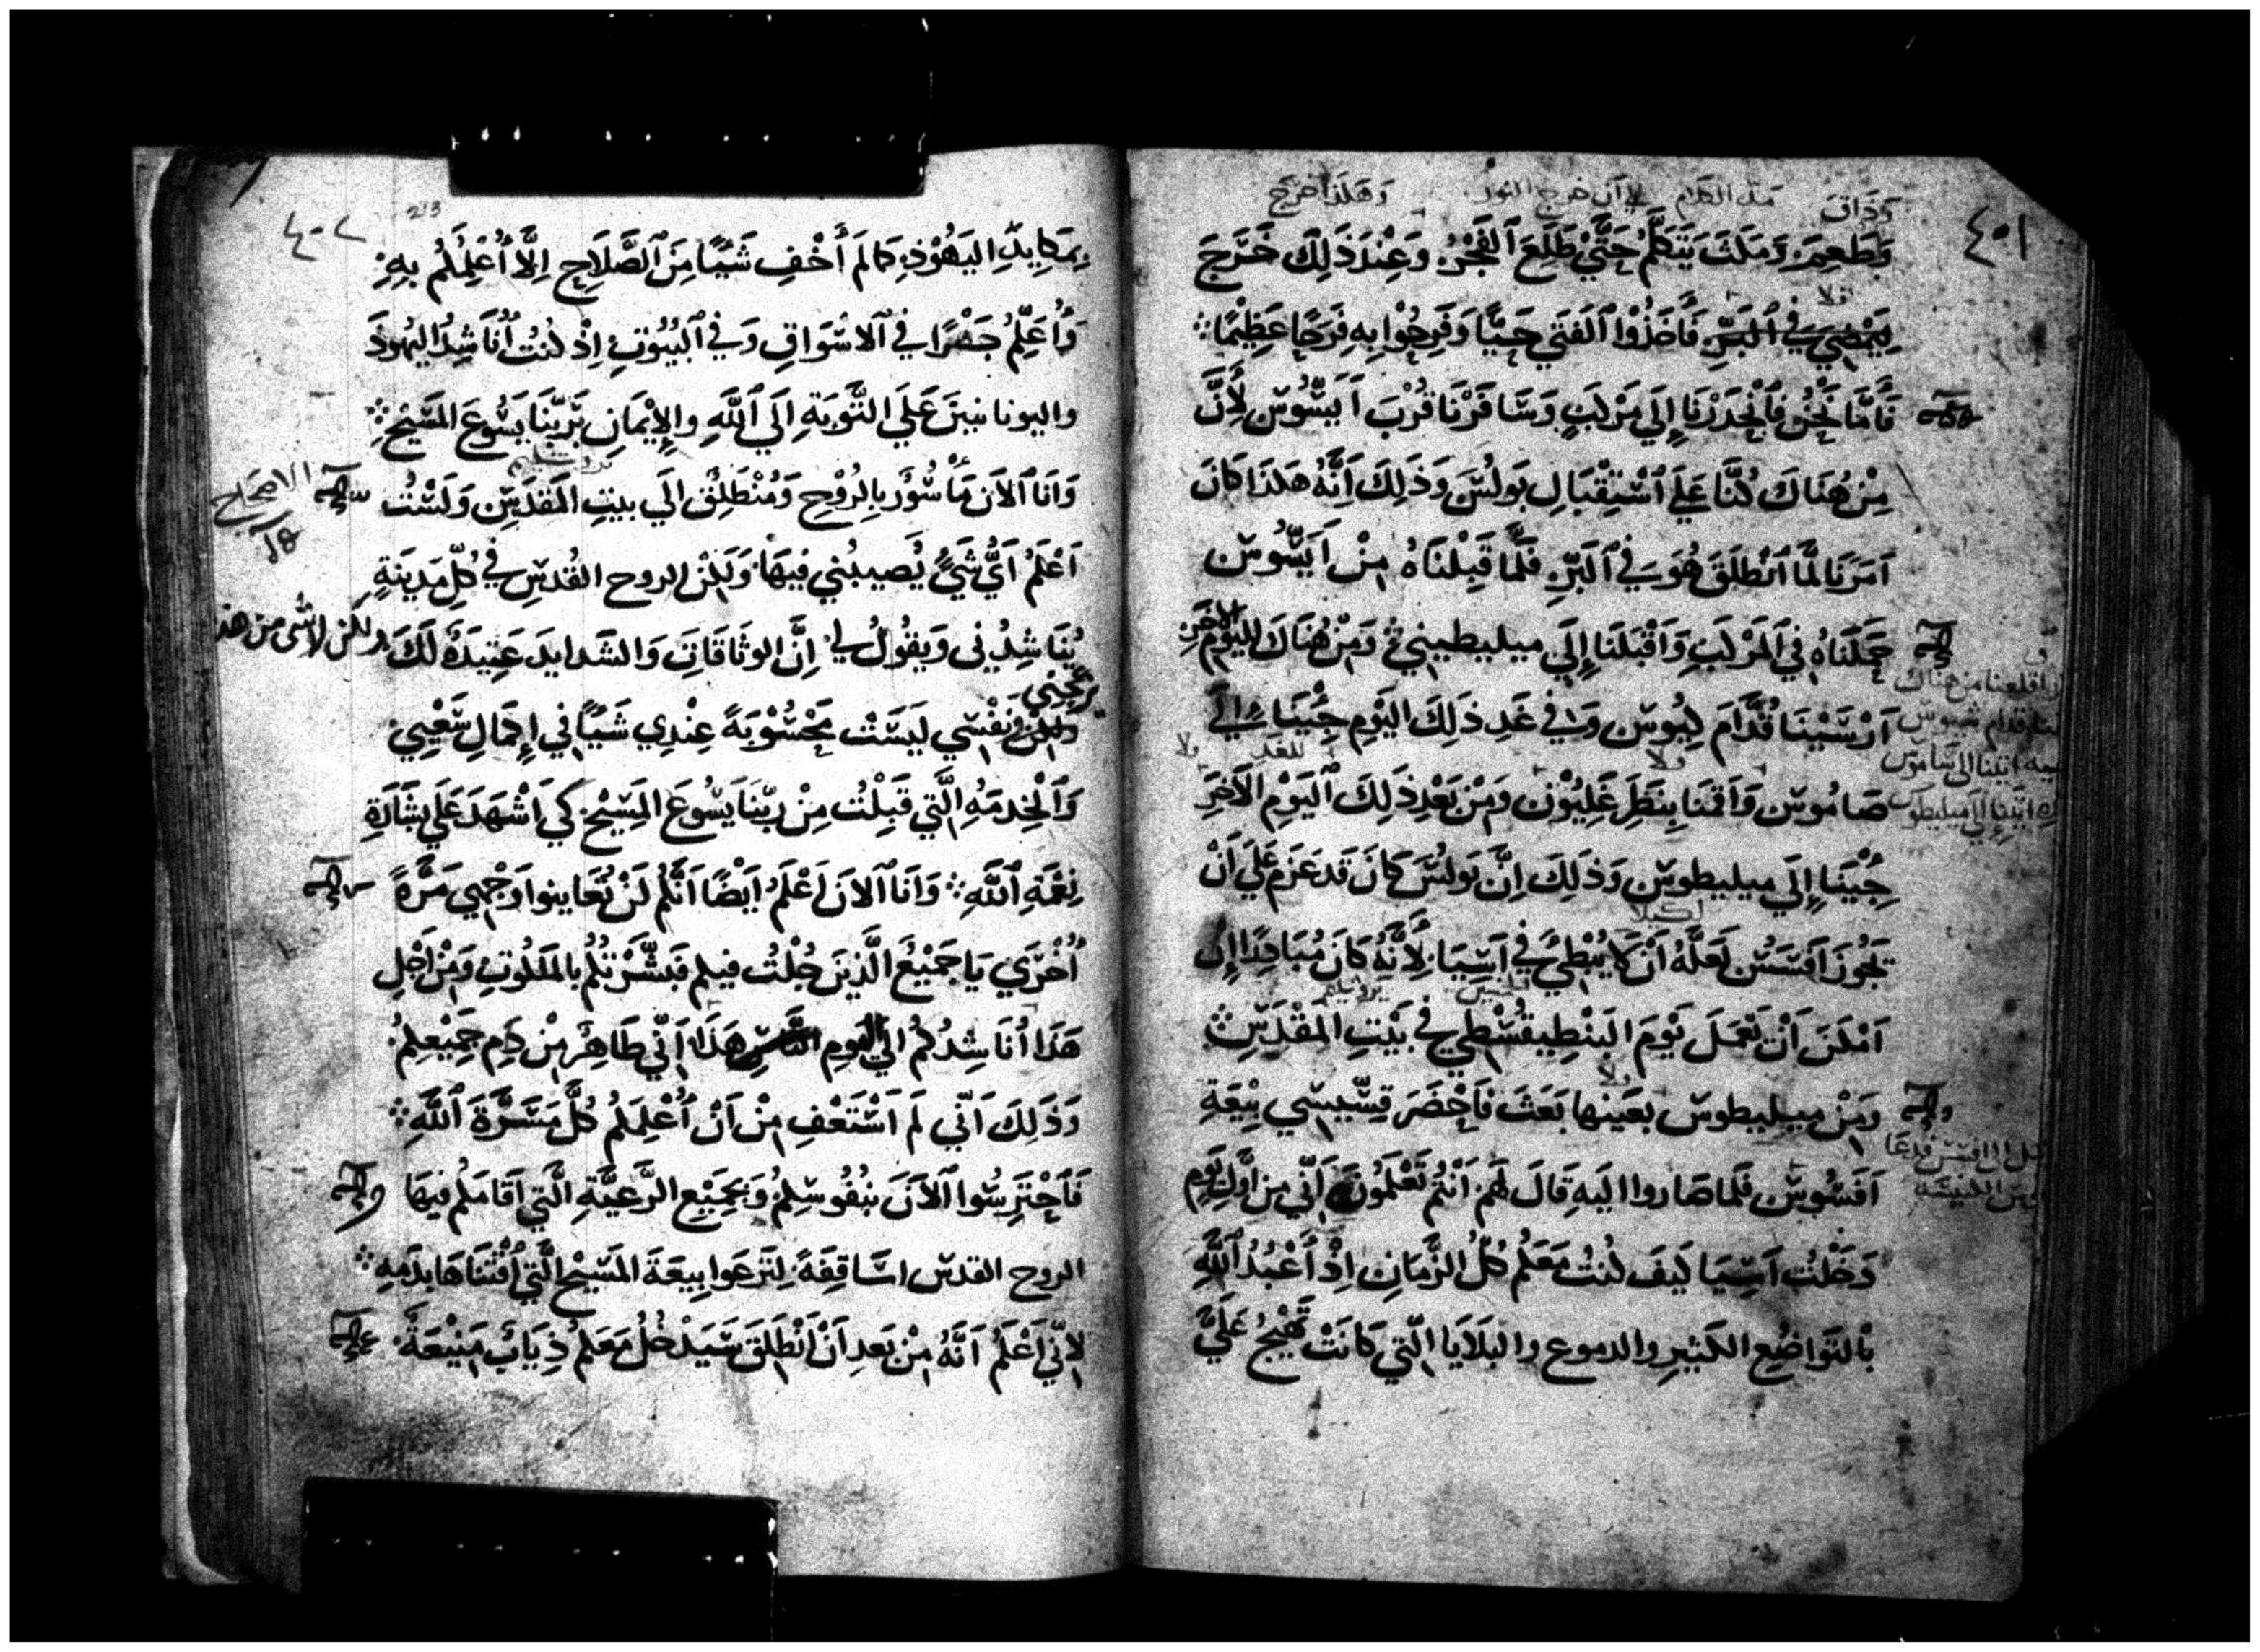 ٤٠١
وَذَاقَ
وَهَكَذَا خَرَجَ
وَطَعِمَ وَمَكَثَ يَتَكَلَّمُ حَتَّيْ طَلَعَ ٱلْفَجْرُ وَعِنْدَ ذَلِكَ خَرَجَ
لِيَمْضِيَ فِي ٱلْبَرِّ فَأَخَذُوْا ٱلْفَتَي حَيًّا وَفَرِحُوْا بِهِ فَرَحًا عَظِيْمًا
فَأَمَّا نَحْنُ فَٱنْحَدَرْنَا إِلَي مَرْكَبٍ وَسَافَرْنَا قُرْبَ اَيَسُّوسَ لِأَنَّ
مِنْ هُنَاكَ كُنَّا عَلَي ٱسْتِقْبَالِ بَولُسَ وَذَلِكَ اَنَّهُ هَكَذَا كَانَ
اَمَرَنَا لَمَّا ٱنْطَلَقَ هُوَ فِي ٱلْبَرِّ فَلَمَّا قَبِلْنَاهُ مِنْ اَيَسُّوسَ
حَمَلْنَاهُ فِي ٱلْمَرْكَبِ وَاَقْبَلْنَا إِلَي ميليطيني وَمِنْ هُنَاكَ لليَوْمِ الاخَرِ
اَرْسَيْنَا قُدَّامَ كِيُوسَ وَفِي غَدِ ذَلِكَ اليَوْمِ جِيْنَا إِلَي
صَامُوسَ وَاَقَمْنَا بِتَطَرَغَلِيُوْنَ وَمِنْ بَعْدِ ذَلِكَ ٱليَوْمِ الاَخَرِ
جِيْنَا إِلَي ميليطوسَ وَذَلِكَ اِنَّ بَولُسَ كَانَ قَد عَزَمَ عَلَي اَنْ
لكيلا
يَجُوزَ اَفَسَسَ لَعَلَّهُ اَنْ لَا يُبْطِئَ فِي اَسِيَا لِأَنَّهُ كَانَ مُبَادِرًا إِنْ
اَمْكَنَ اَنْ يَعْمَلَ يَوْمَ البَنْطِيقُسْطِي فِي بَيْتِ المَقْدِسِ
وَمِنْ ميليطوسَ بعَينها بَعَثَ فَاَحْضَرَ قِسِّيسِي بِيْعَةِ
اَفَسُوسَ فَلَما صَاروا اليَهِ قَالَ لَهُم اَنْتُمْ تَعْلَمُونَ اَنِّي مِن اَوَّلِ يَوم
دَخَلْتُ اَسِيَا كَيفَ كُنتُ مَعَكُم كُلَّ الزَّمَانِ اِذْ أَعْبُدُ ٱللَّهَ
بْالتَّوَاضُعِ الكَثِيْرِ والدموع والبَلَايَا الَّتِي كَانَتْ تَهِيْجُ عَلَيَّ
٤٠٢
213
بِمَكَايِدِ اليَهُوْدِ كَمَا لَم أُخْفِ شَيْئًا مِنَ ٱلصَّلَاحِ اِلَّا أُعْلِمُكُم بِهِ
وَأُعَلِّمُ جَهْرًا فِي ٱلاَسْوَاقِ وَفِي ٱلبُيُوتِ اِذْ كُنتُ أُنَاشِدُ اليَهُودَ
واليونانيينَ عَلَي التَّوبَةِ اِلَي ٱللَّهِ والاِيْمَانِ بِرَبِّنَا يَسُوعَ المَسِيْحِ
وَاَنَا ٱلاَنَ مَأْسُوْرٌ بِالرُوْحِ وَمُنْطَلِقٌ اِلَي بيتِ المَقْدِسِ وَلَسْتُ
الاصحاح
اَعْلَمُ اَيُّ شَيْءٍ يُصِيبُنِي فِيهَا وَلَكِنْ الروح القُدسِ فِي كُلِّ مَدِينَةٍ
يُنَاشِدُنِي وَيَقُولُ لِي اِنَّ الوثَاقَاتِ وَالشَّدايدَ عَتِيدَةٌ لَكَ
ولكن لاشى من هذ
يرجعنى
وَلَكِنْ نَفْسِي لَيسَتْ مَحْسُوْبَةً عِنْدِي شَيْئًا فِي إِكمَالِ سَعْيِي
وَٱلْخِدمَةِ الَّتِي قَبِلْتُ مِنْ رَبِّنَا يَسُوعَ المَسِيْحِ كَي اَشْهَدَ عَلَي بِشَارَةِ
نِعْمَةِ ٱللَّهِ وَاَنَا ٱلاَنَ اَعْلَمُ اَيْضًا اَنَّكُم لَنْ تُعَاينوا وَجْهِي مَرَّةً
أُخْرَي يَا جَمِيْعَ الَّذِينَ جُلْتُ فيكم فَبَشَّرْتُكُم بالمَلَكُوتِ وَمِنْ اَجْلِ
هَذَا أُنَاشِدُكُم اليَوم هَذَا اَنِّي طَاهِرٌ مِنْ دَمِ جَمِيْعِكُمْ
وَذَلِكَ اَنِّي لَم اَسْتَعْفِ مِنْ اَنْ أُعْلِمَكُم كُلَّ مَسَرَّةِ ٱللَّهِ
فَٱحْتَرِسُوا ٱلاَنَ بِنُفُوسِكُم وَبِجَمِيْعِ الرَّعيَّةِ الَّتِي اَقَامَكُم فِيهَا
الروح القدس اسَّاقِفَةً لِتَرعَوا بِيعَةَ المَسِيْحِ الَّتِي اَقْتَنَاهَا بِدَمِهِ
لِانِّي اَعْلَمُ اَنَّهُ مِنْ بَعدِ اَنْ اَنْطَلِقَ سَيَدْخُلُ مَعَكمُ ذِيَابٌ مَنِيْعَةٌ